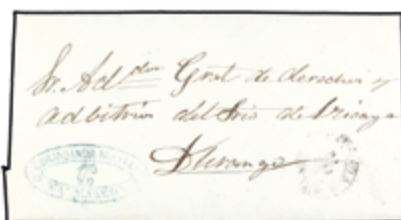 Sr. Ad.dor Gral de derechos y
adbitrios del Srio de Vizcaya
Durango